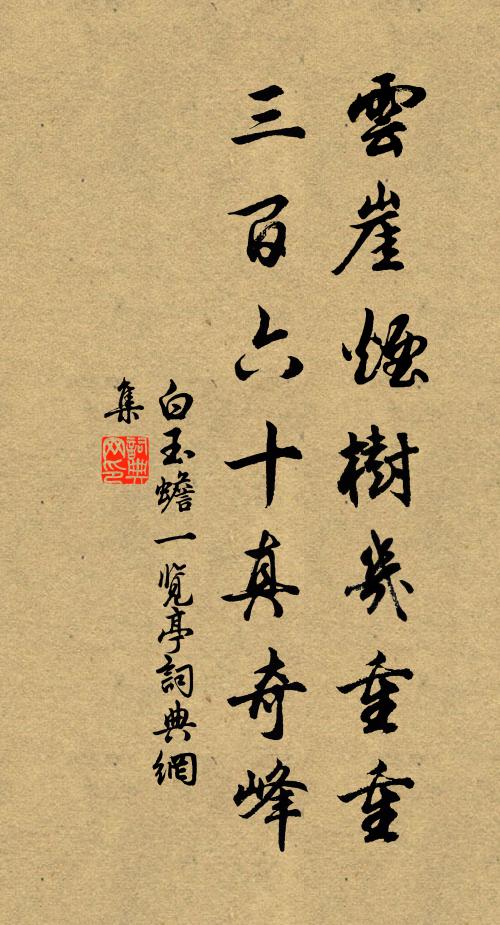 雲崖煙樹幾重重
三百六十真奇峰
白玉蟾一覧亭詞典網
集
詞典网印